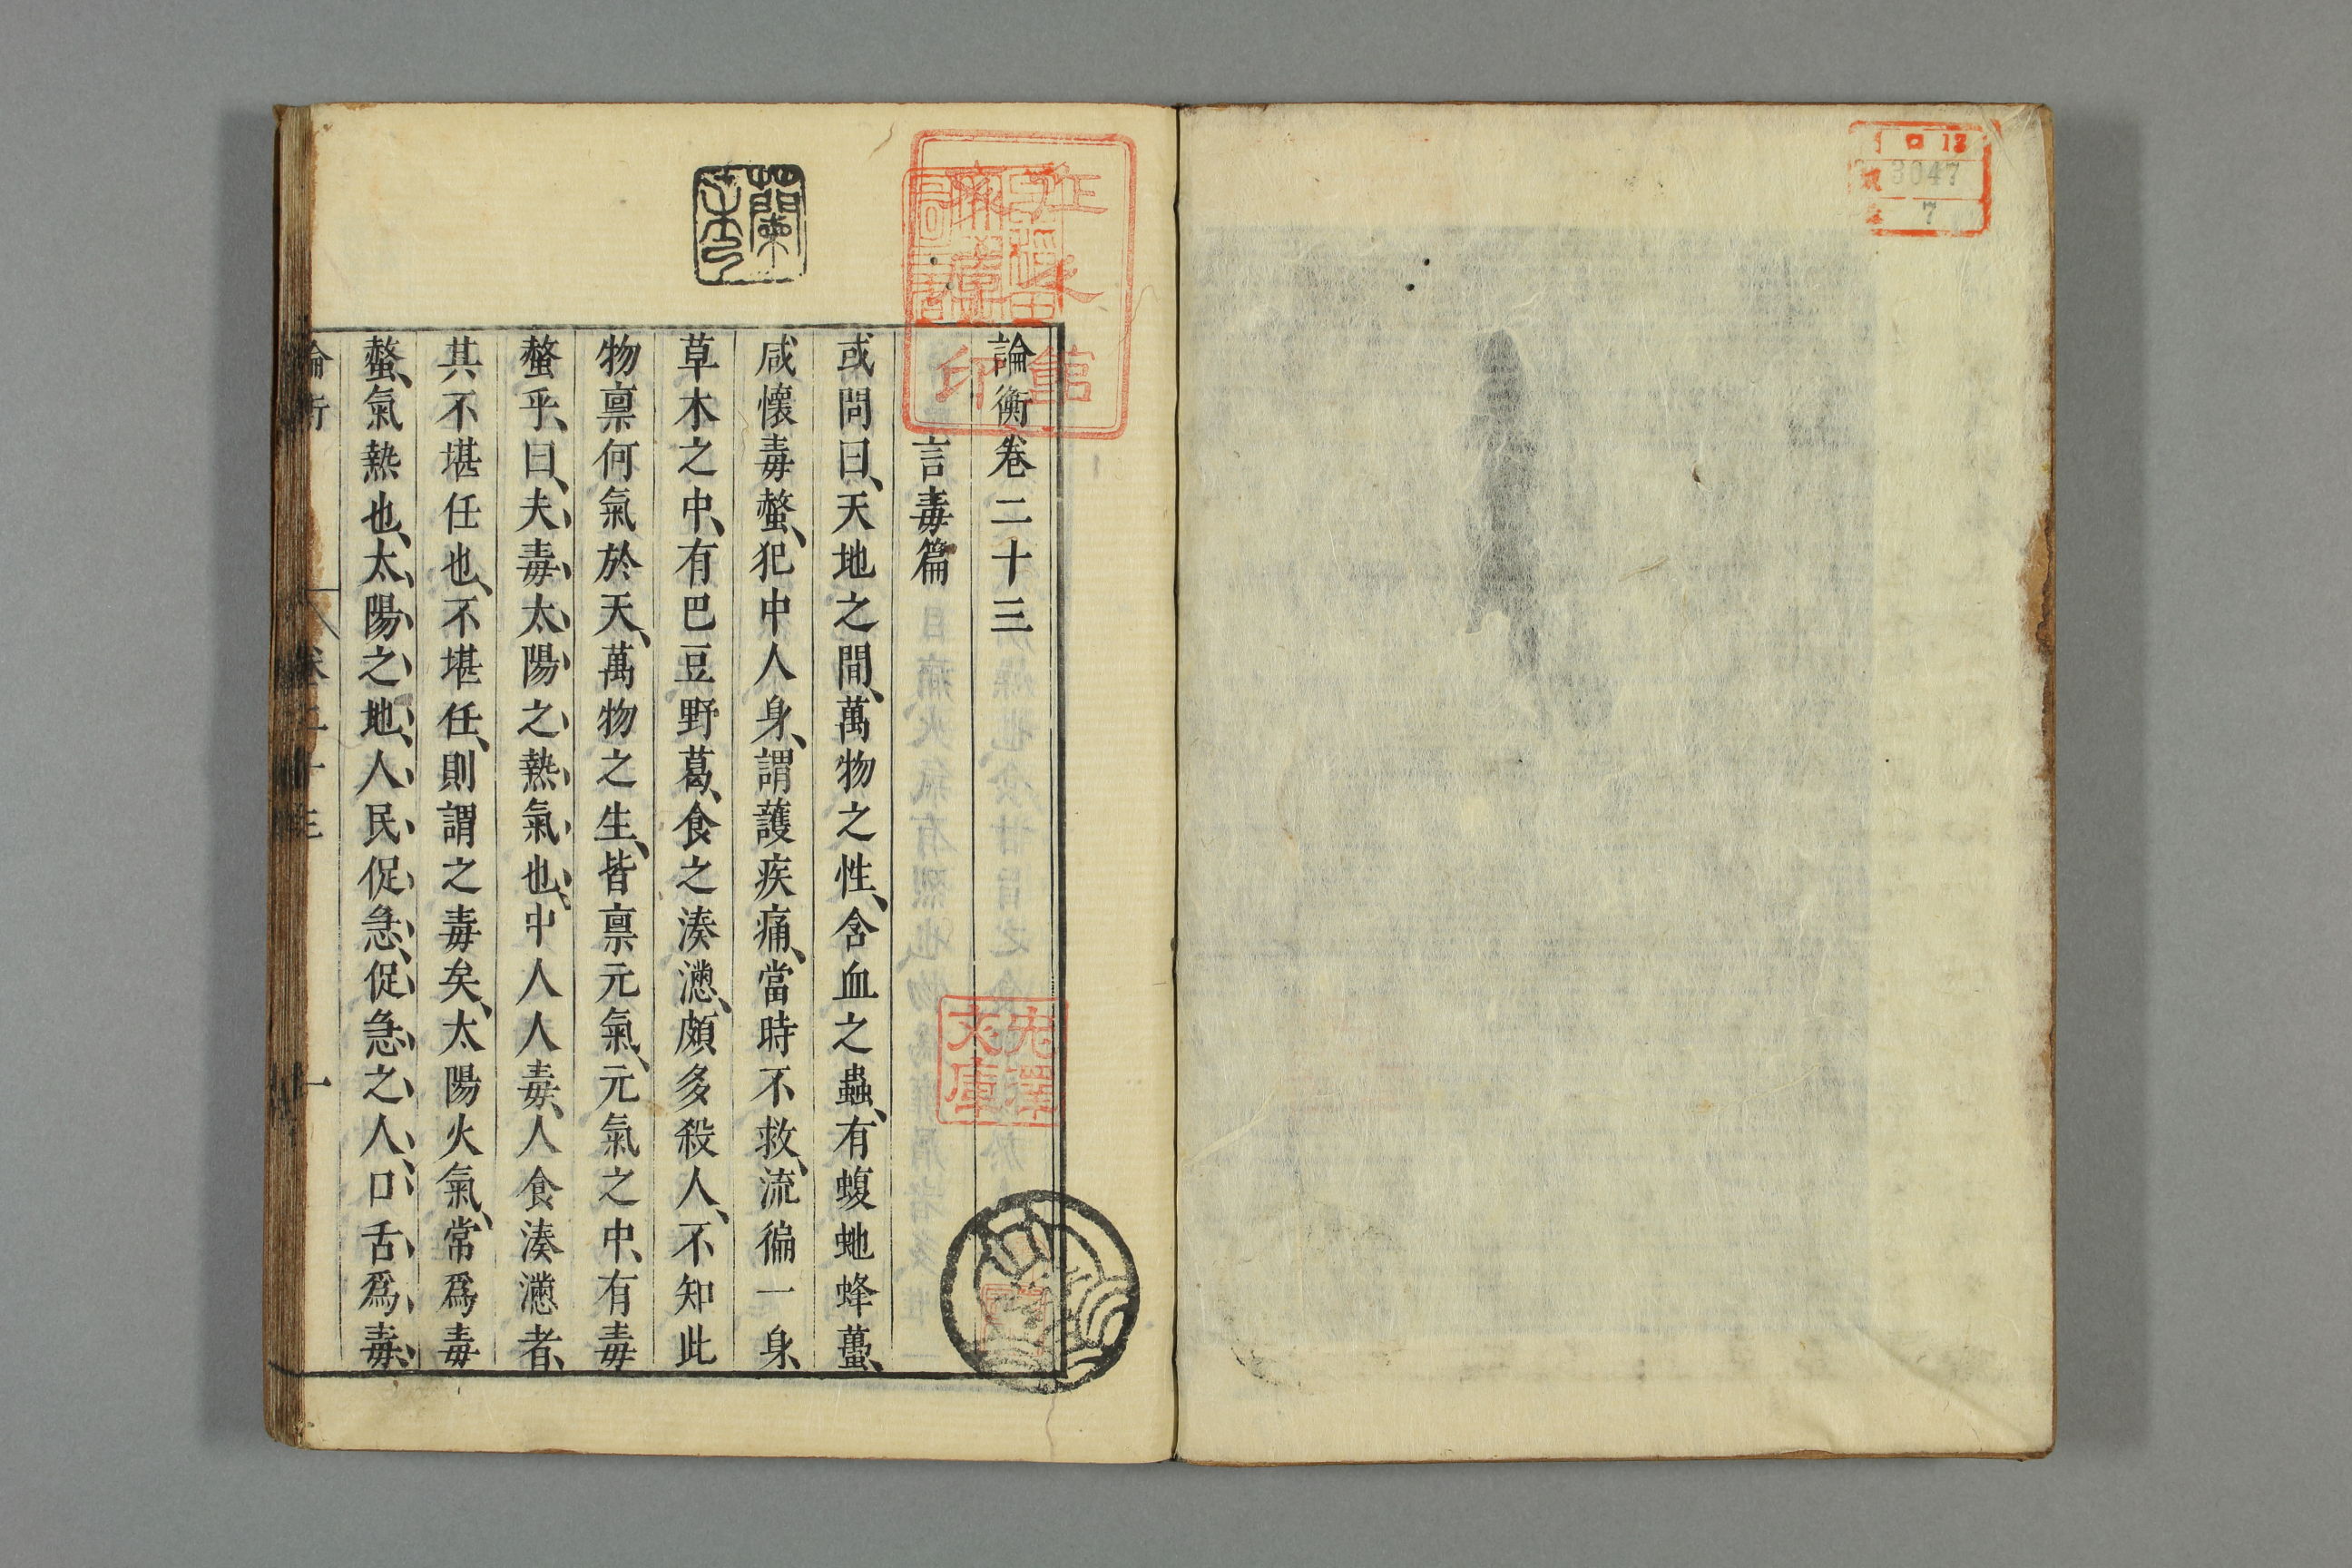 口 13
3047
7
論衡卷二十三
言毒篇
或問曰、天地之間、萬物之性、含血之蟲、有蝮虵蜂蠆、
咸懷毒螫、犯中人身、謂護疾痛、當時不救、流徧一身、
草木之中、有巴豆野葛、食之湊懣、頗多殺人、不知此
物禀何氣於天、萬物之生、皆禀元氣、元氣之中、有毒
螫乎、曰、夫毒、太陽之熱氣也、中人人毒、人食湊懣者、
其不堪任也、不堪任、則謂之毒矣、太陽火氣、常爲毒
螫、氣熱也、太陽之地、人民促急、促急之人、口舌爲毒、
論衡
卷二十三
一
文庫
館印
蘭